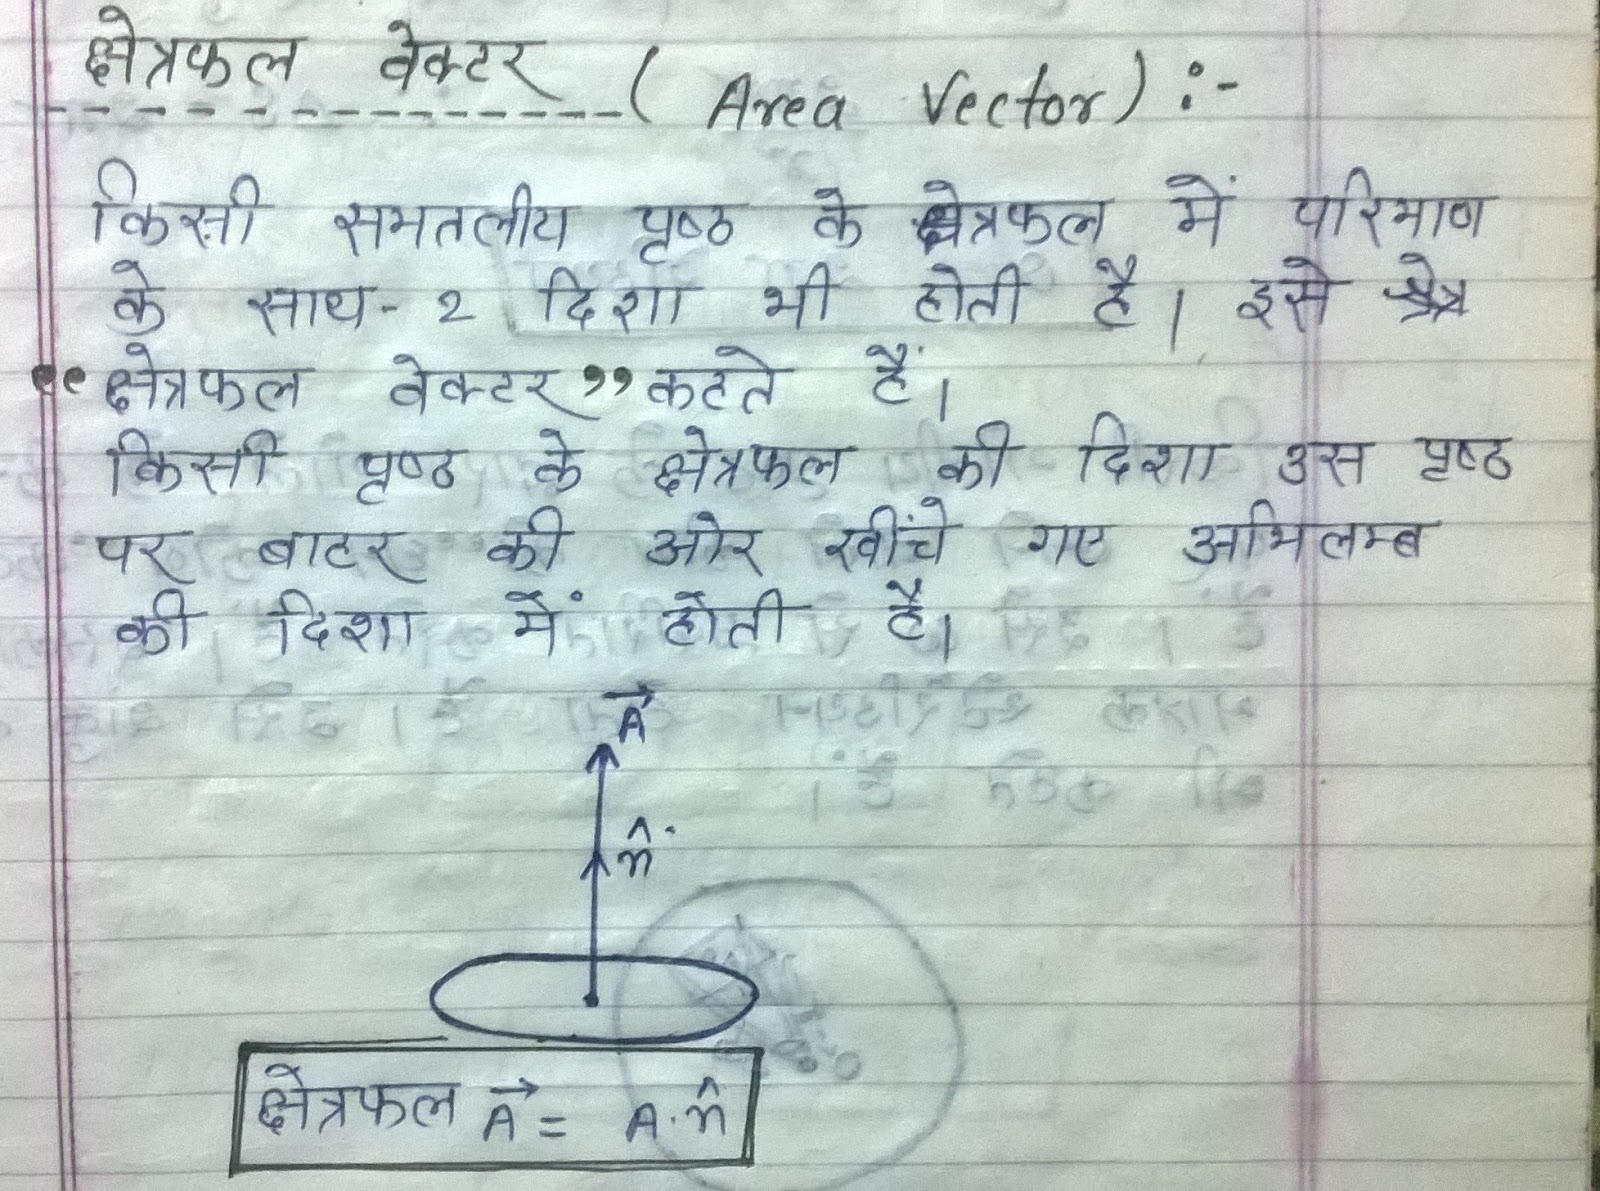 क्षेत्रफल वेक्टर ( Area Vector ) :-
किसी समतलीय पृष्ठ के क्षेत्रफल में परिमाण
के साथ-2 दिशा भी होती है। इसे
"क्षेत्रफल वेक्टर" कहते हैं।
किसी पृष्ठ के क्षेत्रफल की दिशा उस पृष्ठ
पर बाहर की ओर खींचे गए अभिलम्ब
की दिशा में होती है।
A⃗
n̂
क्षेत्रफल A⃗ = A.n̂